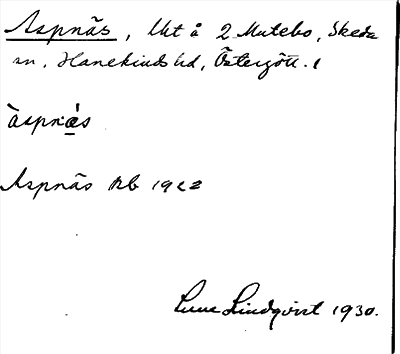 Aspnäs, Uit å 2 Mutebo, Skeda
sn, Hanekinds hd, Östergötl.
àspnǝ̣s
Aspnäs Rb 1922
Sune Lindqvist 1930.